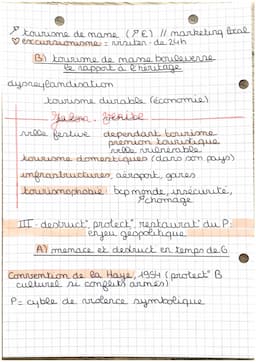 ↗ tourisme de masse (↗ E) // marketing local
♡ excursionnisme = visiter - de 24h
B) tourisme de masse bouleverse
le rapport à l'héritage
dysneylandisation
tourisme durable (économie)
ville festive dependant tourisme
pression touristique
ville vulnérable
tourisme domestiques (dans son pays)
infrastructures, aéroport, gares
tourismophobie bcp monde, insécurité,
↗ chomage
III - destruct°, protect°, restaurat° du P :
enjeu géopolitique
A) menace et destruct en temps de G
Convention de la Haye, 1954 (protect° B
culturel si conflits armés)
P = cyble de violence symbolique